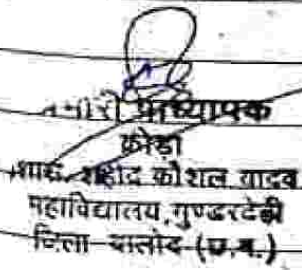 प्राध्यापक
क्रीड़ा
शास. शहीद कौशल यादव
महाविद्यालय, गुण्डरदेही
जिला-बालोद (छ.ग.)